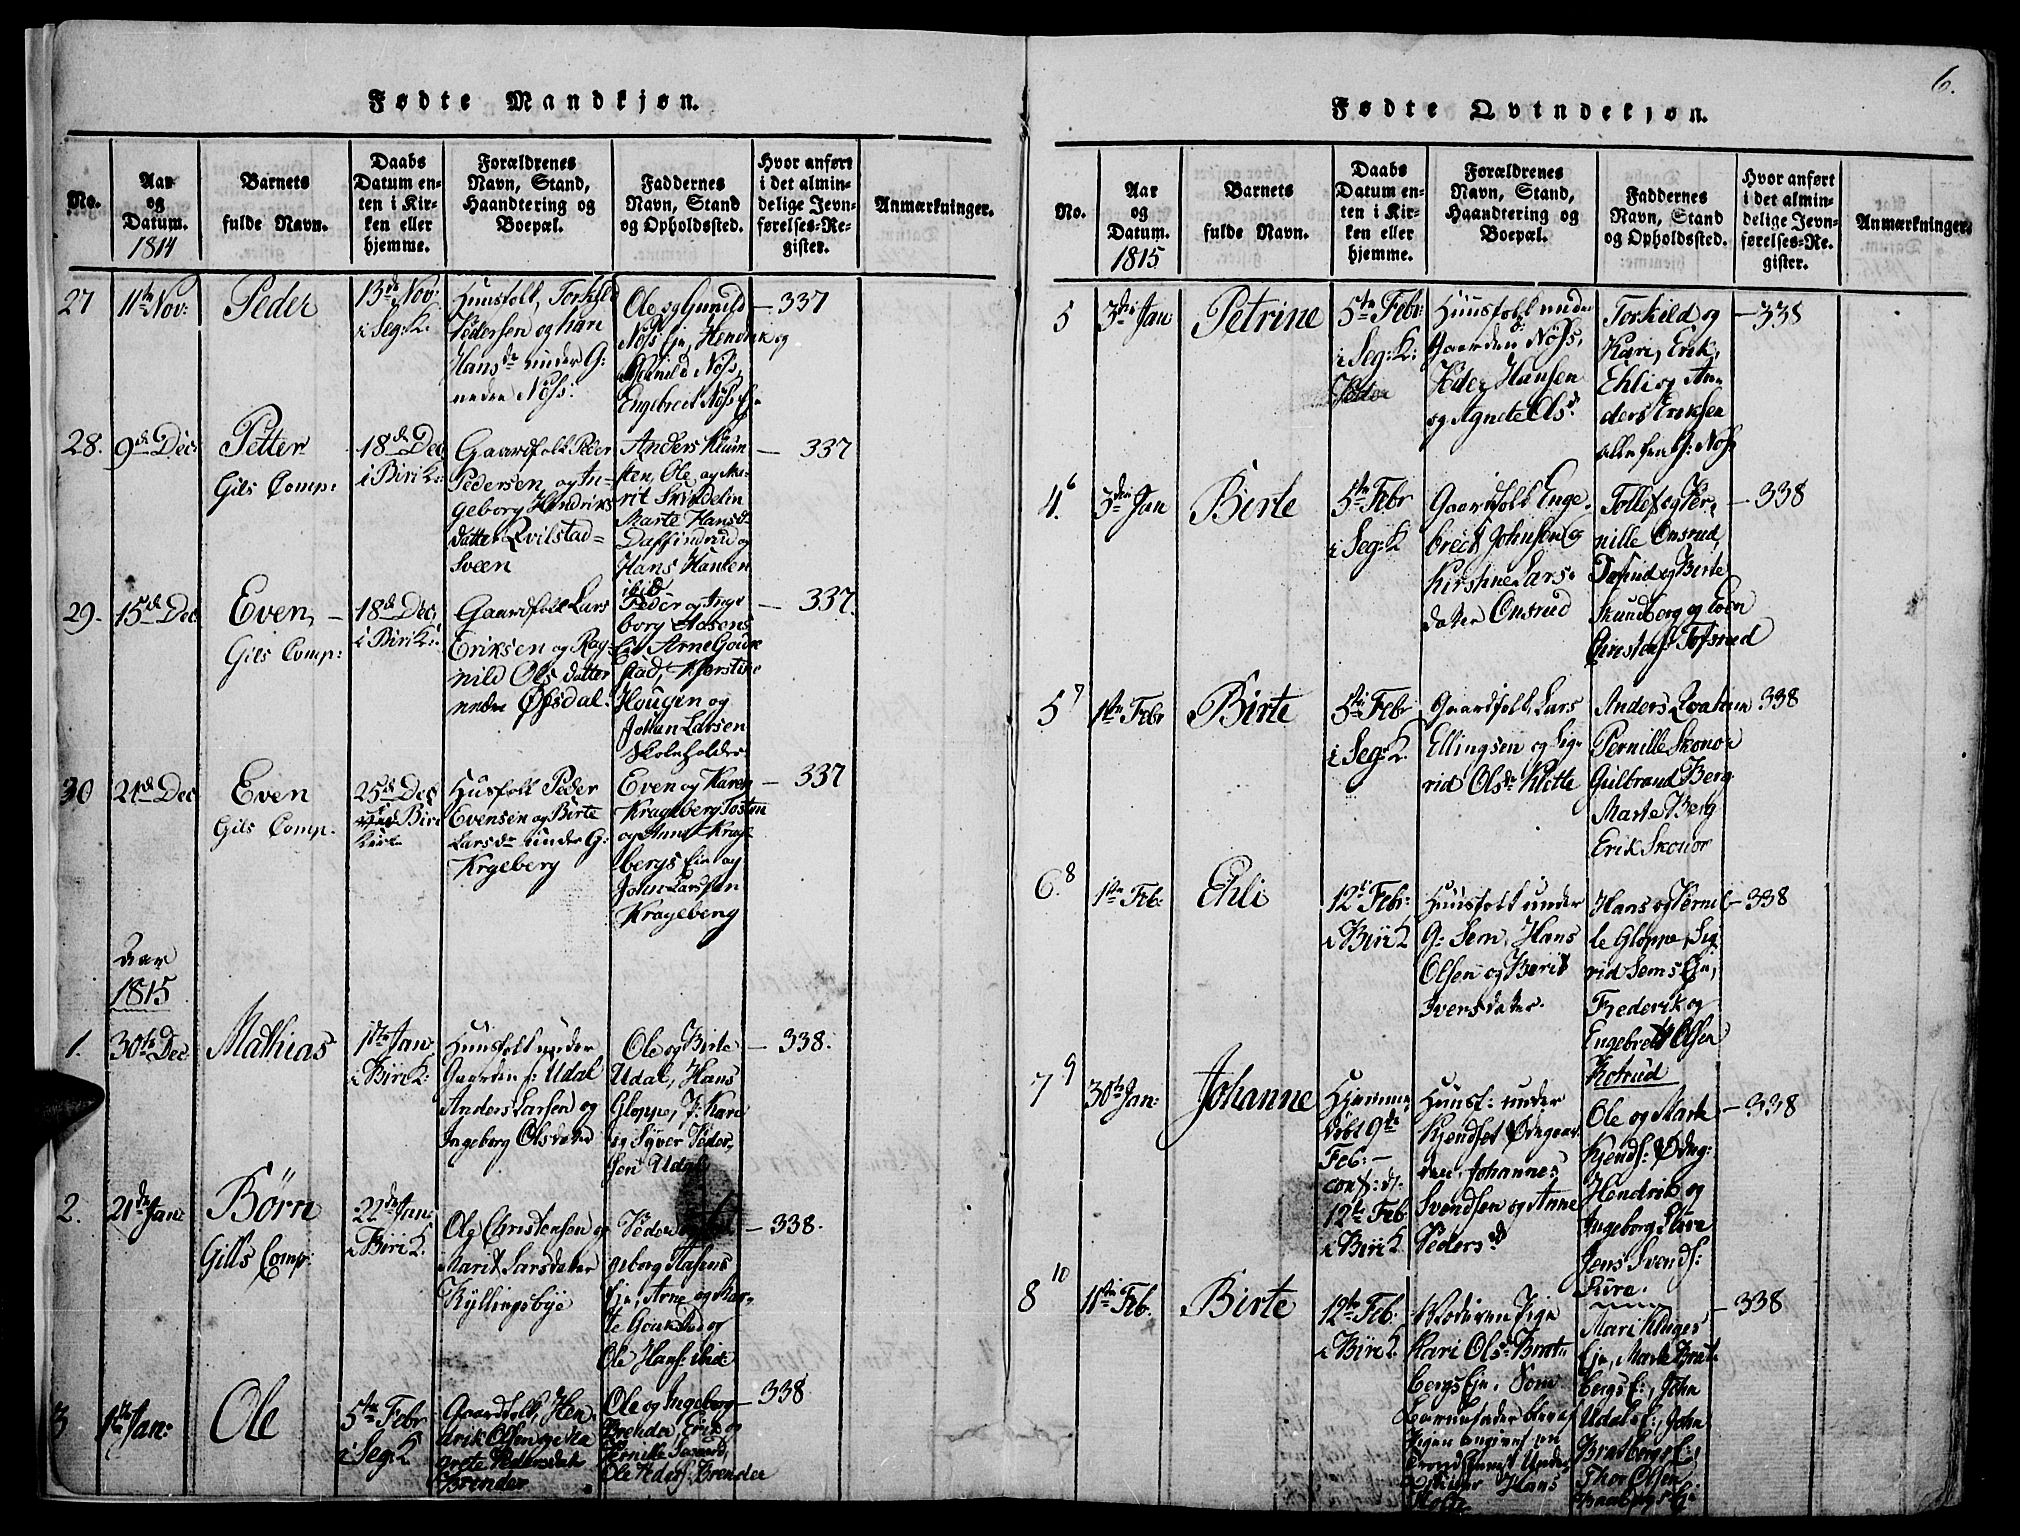 6.
Fødte Mandkjøn.
No.
Aar
og
Datum.
1814
Barnets
fulde Navn.
Daabs
Datum en-
ten i Kir-
ken eller
hjemme.
Forældrenes
Navn, Stand,
Haandtering og
Boepæl.
Faddernes
Navn, Stand
og Opholdssted.
Hvor anført
i det almin-
delige Jevn-
førelses-Re-
gister.
Anmærkninger.
27
11te Nov:
Peder
13de Nov:
i Seg: K:
Huusfolk, Torkild
Pedersen og Kari
Hansdr under G:
Ole og Gunild
Engebret
337
28.
9de Dec:
Petter
Gils Comp:
18de Dec
i Biri K:
Gaardfolk Peder
Pedersen og In-
geborg Hendriks
datter Qvilstad-
Sveen
Anders Klum-
sten, Ole og Ma-
rit Skindelin
Marte Hansdr
Daffindrud og
Hans Hansen
ibid
337
29.
15de Dec
Even,
Gils Comp:
18de Dec
i Biri K:
Gaardfolk Lars
Eriksen og Rag-
nild Olsdatter
nedre Øfsdal.
Peder og Inge
borg
Hougen og
Johan Larsen
Skoleholder
337.
30
21de Dec
Even
Gils Comp.
25de Dec
Biri
Kirke
Husfolk Peder
Evensen og Birte
Larsdr under G:
Krgeberg
Even og Karen
Krageberg Tosten
og Anne Krage
bergs Eie og
John Larssen
Krageberg
337
Aar
1815
1.
30te Dec
Mathias
1ste Jan
i Biri K:
Huusfolk under
Gaarden s: Udal
Anders Larsen og
Ingeborg Olsdatter
Ole og Birte
Udal, Hans
Gloppe, J: Kari
og Syver Peder-
sen Udal
338.
2.
21de Jan
Børre
Gills Comp:
22de Jan:
i Biri K:
Ole Christensen og
Marit Larsdatter
Kyllingsbye
Peder
geborg
Eie, Arne og Mar-
te
Ole Hans: ibid:
338.
3
1ste Jan:
Ole
5te Febr
i Seg: K
Gaardfolk, Hen-
drik Olsen og Ma
grete Pedersdat
Brender
Ole og Ingeborg
Brender, Erik og
Pernille
Ole Brender
338
Fødte Qvindekjøn.
No.
Aar
og
Datum.
1815
Barnets
fulde Navn.
Daabs
Datum en-
ten i Kir-
ken eller
hjemme.
Forældrenes
Navn, Stand,
Haandtering og
Boepæl.
Faddernes
Navn, Stand
og Opholdssted.
Hvor anført
i det almin-
delige Jevn-
førelses-Re-
gister.
Anmærkninger.
5
3die Jan
Petrine
5te Febr:
i Seg: K:
Huusfolk under
Gaarden
Peder Hansen
og Agnete Olsdr
Torkild og
Kari, Erik,
Ehli og An-
ders Eriksen
alle fra
338
4. 6
3die Jan
Birte
5te Febr
i Seg: K
Gaardfolk Enge-
bret Johnsen og
Kirstine Lars-
dater Onsrud
Tollef og Per-
nille Onsrud,
og Birte
Skundberg og Even
338
5 7
1ste Febr
Birte
5te Febr
i Seg: K.
Gaardfolk Lars
Ellingsen og Sig-
rid Olsdr Klette
Anders
Pernille Skonor
Gulbrand Berg
Marte Berg
Erik Skonor
338
6. 8
1ste Feb:
Ehli
12te Feb:
i Biri K
Huusfolk under
G: Sem, Hans
Olsen og Berit
Iversdater.
Hans og Pernil-
le Gloppe, Sig
rid Sems Eje,
Frederik og
Engebret Olsen
Kotrud
338
7 9
30te Jan:
Johanne
Hjemme
døbt 9de
Feb:
conf: d:
12te Feb
i Biri K
Huusf: under
Kjendset Ødegaar
den, Johannes
Svendsen og Anne
Pedersdr
Ole og Marte
Kjends: Ødeg:
Hendrik og
Ingeborg
Jens Svends:
338
8 10
11te Feb.
Birte
12te Feb:
i Biri K
Moderen Pige
Kari Olsdr Brat-
bergs Eje. Som
Barnefader blev af
Pigen angivet
Hans
Mari Kluges
Eje, Marte Brat
bergs E:, John
Udals E:, John
Bratbergs E:,
Thor Olsen
338